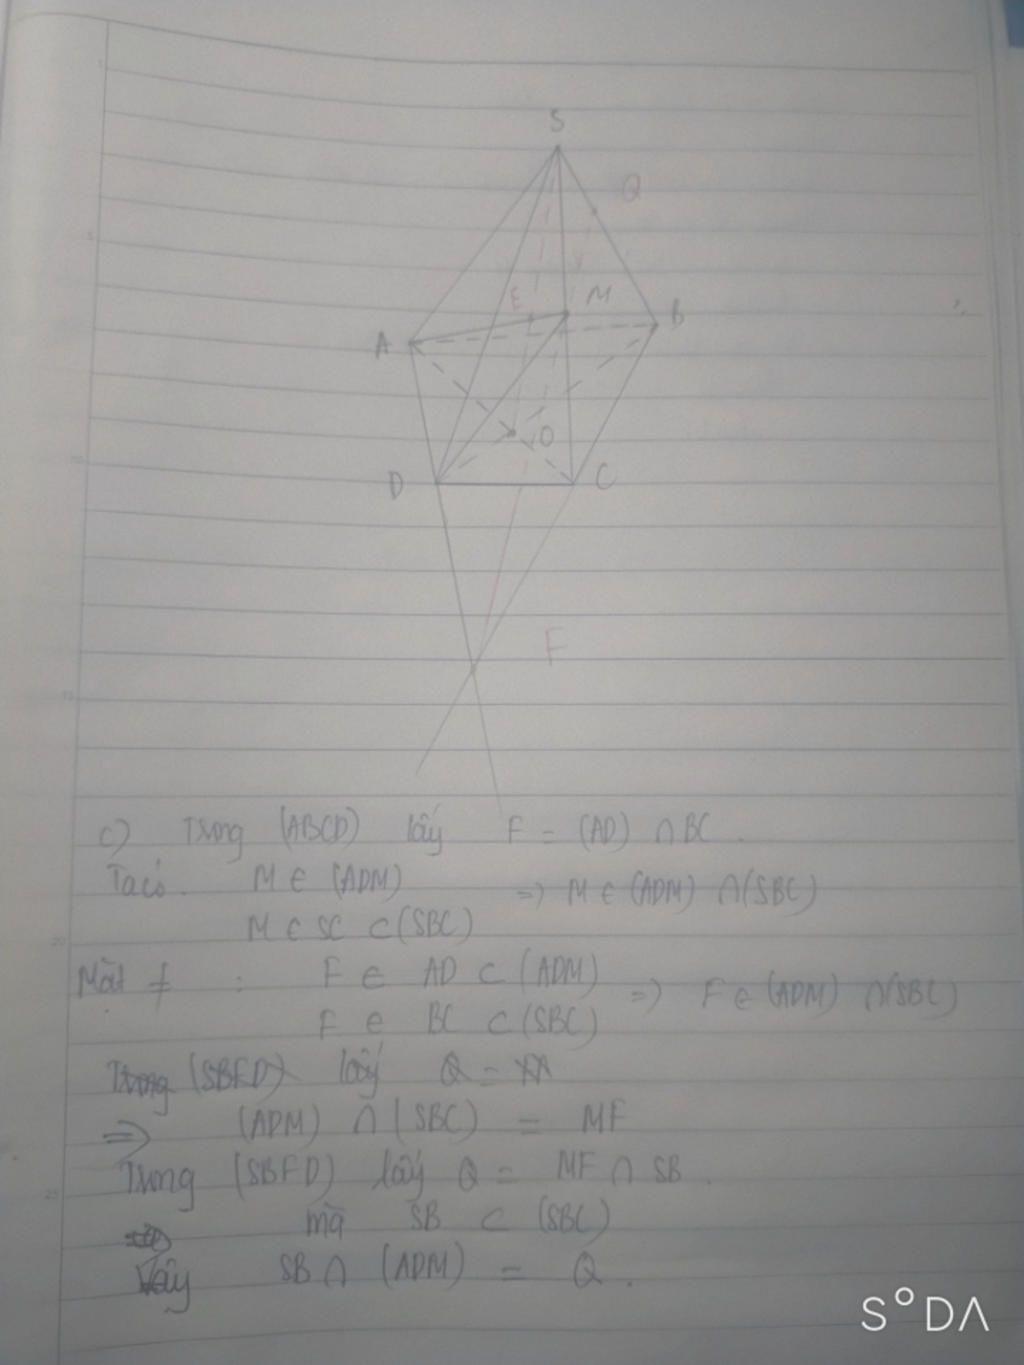 S
Q
E M
A B
O
D C
F
c) Trong (ABCD) lấy F = (AD) ∩ BC.
Ta có. M ∈ (ADM) => M ∈ (ADM) ∩ (SBC)
M ∈ SC ⊂ (SBC)
Mặt ≠ : F ∈ AD ⊂ (ADM) => F ∈ (ADM) ∩ (SBC)
F ∈ BC ⊂ (SBC)
Trong (SBFD) lấy Q =
=> (ADM) ∩ (SBC) = MF
Trong (SBFD) lấy Q = MF ∩ SB.
mà SB ⊂ (SBC)
Vậy SB ∩ (ADM) = Q.
S°DA